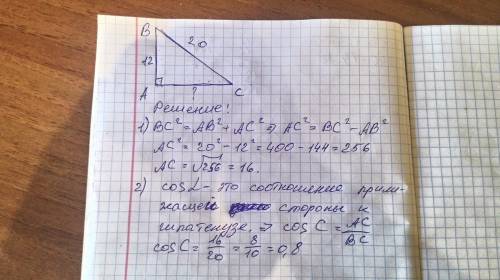 B
20
12
A
?
C
Решение!
1) BC² = AB² + AC² ⇒ AC² = BC² - AB²
AC² = 20² - 12² = 400 - 144 = 256
AC = √256 = 16.
2) cos L - это соотношение приле-
жащей стороны к
гипатенузе, ⇒ cos C = AC/BC
cos C = 16/20 = 8/10 = 0,8